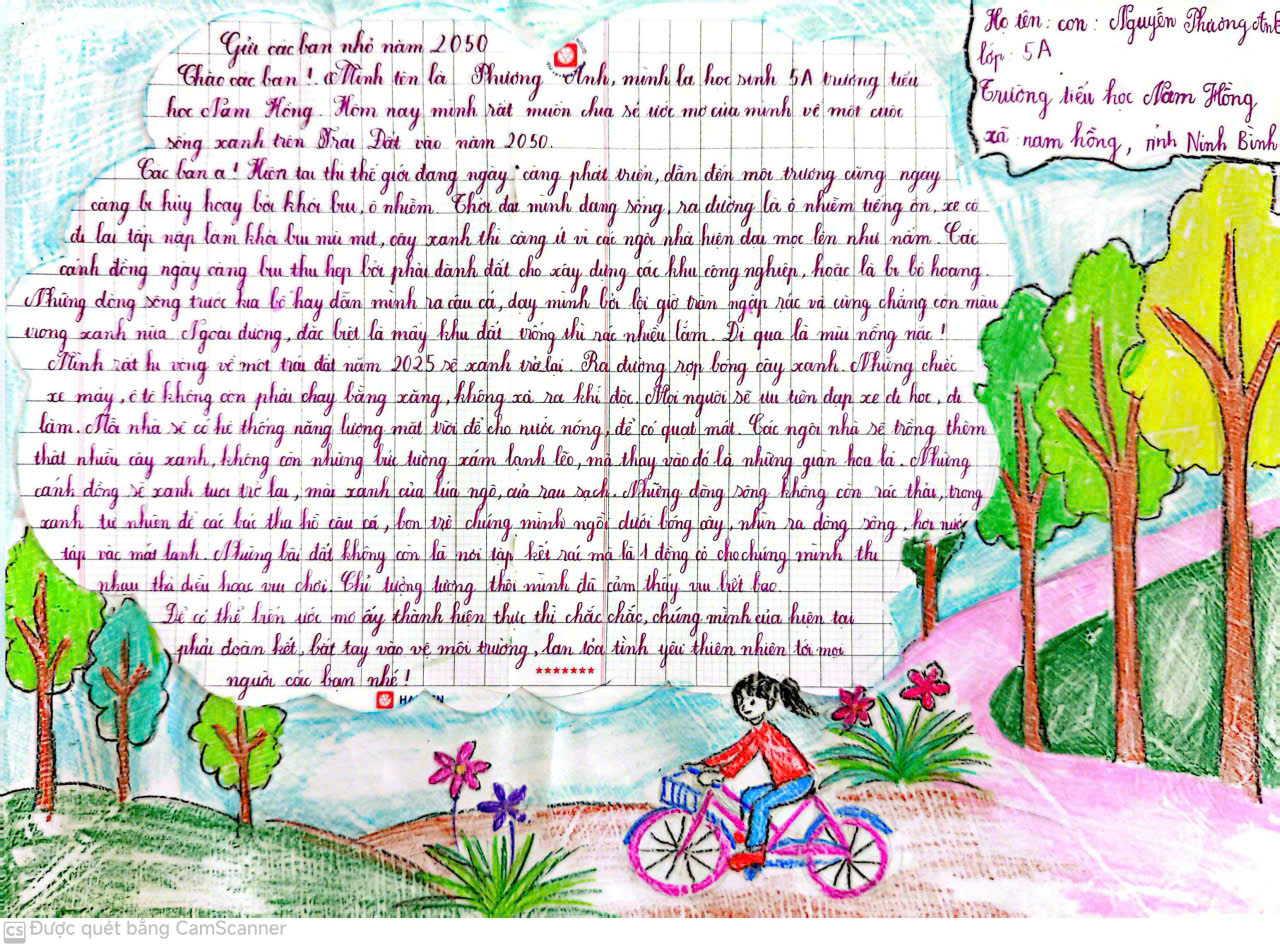 Gửi các bạn nhỏ năm 2050
Chào các bạn! Mình tên là Phương Anh, mình là học sinh 5A trường tiểu
học Nam Hồng. Hôm nay mình rất muốn chia sẻ ước mơ của mình về một cuộc
sống xanh trên Trái Đất vào năm 2050.
Các bạn ạ! Hiện tại thì thế giới đang ngày càng phát triển, dẫn đến môi trường cũng ngày
càng bị hủy hoại bởi khói bụi, ô nhiễm. Thời đại mình đang sống, ra đường là ô nhiễm tiếng ồn, xe cộ
đi lại tấp nập làm khói bụi mù mịt, cây xanh thì càng ít vì các ngôi nhà hiện đại mọc lên như nấm. Các
cánh đồng ngày càng bị thu hẹp bởi phải dành đất cho xây dựng các khu công nghiệp, hoặc là bị bỏ hoang.
Những dòng sông trước kia bố hay dẫn mình ra câu cá, dạy mình bơi lội giờ tràn ngập rác và cũng chẳng còn màu
trong xanh nữa. Ngoài đường, đặc biệt là mấy khu đất trống thì rác nhiều lắm. Đi qua là mùi nồng nặc!
Mình rất hi vọng về một trái đất năm 2025 sẽ xanh trở lại. Ra đường rợp bóng cây xanh. Những chiếc
xe máy, ô tô không còn phải chạy bằng xăng, không xả ra khí độc. Mọi người sẽ ưu tiên đạp xe đi học, đi
làm. Mỗi nhà sẽ có hệ thống năng lượng mặt trời để cho nước nóng, để có quạt mát. Các ngôi nhà sẽ trồng thêm
thật nhiều cây xanh, không còn những bức tường xám lạnh lẽo, mà thay vào đó là những giàn hoa lá. Những
cánh đồng sẽ xanh tươi trở lại, mãi xanh của lúa ngô, của rau sạch. Những dòng sông không còn rác thải, trong
xanh tự nhiên để các bác tha hồ câu cá, bọn trẻ chúng mình ngồi dưới bóng cây, nhìn ra dòng sông, hơi nước
táp vào mát lạnh. Những bãi đất không còn là nơi tập kết rác mà là 1 đồng cỏ cho chúng mình thi
nhau thả diều hoặc vui chơi. Chỉ tưởng tượng thôi mình đã cảm thấy vui biết bao.
Để có thể biến ước mơ ấy thành hiện thực thì chắc chắc, chúng mình của hiện tại
phải đoàn kết, bắt tay vào vệ môi trường, lan tỏa tình yêu thiên nhiên tới mọi
người các bạn nhé!
*******
Họ tên: con: Nguyễn Phương Anh
lớp: 5A
Trường tiểu học Nam Hồng
xã nam hồng, tỉnh Ninh Bình
CS Được quét bằng CamScanner